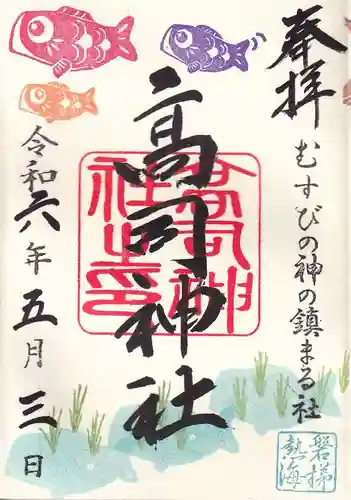 奉拝
むすびの神の鎮まる社
高司神社
高司神社之印
令和六年五月三日
磐梯
熱海